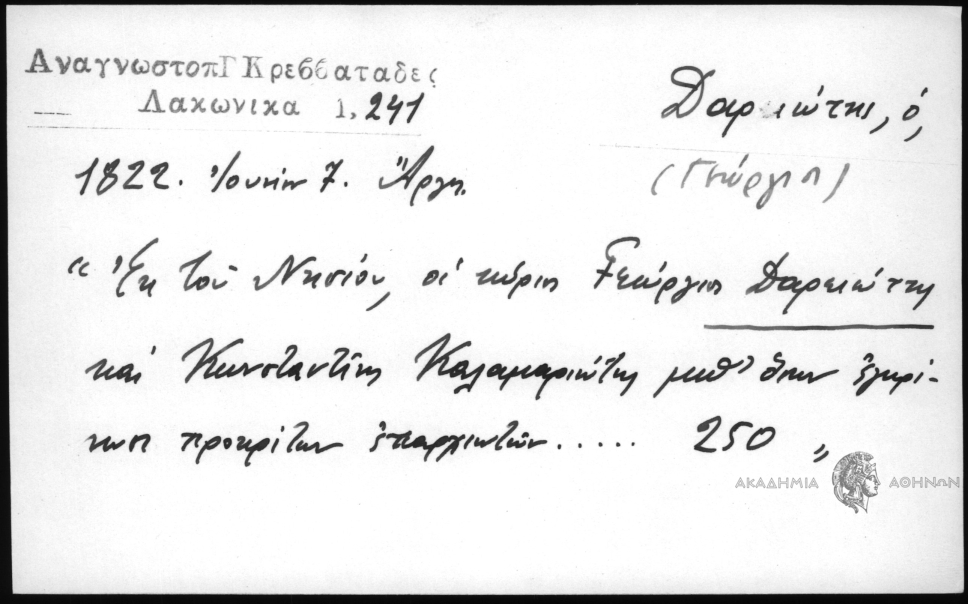 ΑναγνωστοπΓ Κρεββαταδες
Λακωνικα 1, 241
Δαρειώτης, ὁ,
1822. Ἰουνίου 7. Ἄργος
(Γεώργιος)
“ Ἐκ τοῦ Νησίου, οἱ κύριοι Γεώργιος Δαρειώτης
καί Κωνσταντῖνος Καλαμαριώτης μεθ' ὅλων ἐγκρί-
των προκρίτων ἐπαρχιωτῶν ..... 250 „
ΑΚΑΔΗΜΙΑ ΑΘΗΝΩΝ